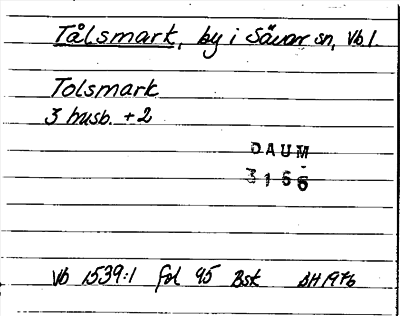 Tålsmark, by i Sävar sn, Vbl.
Tolsmark
3 husb. +2
DAUM
3166
Vb 1539:1 fol 95 Bsk BH 1976